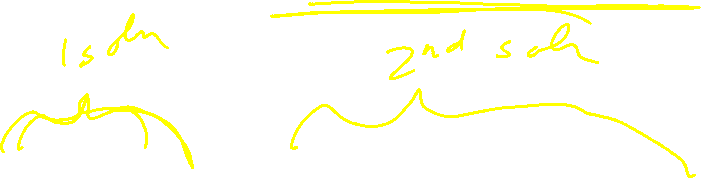 1 soln
2nd soln